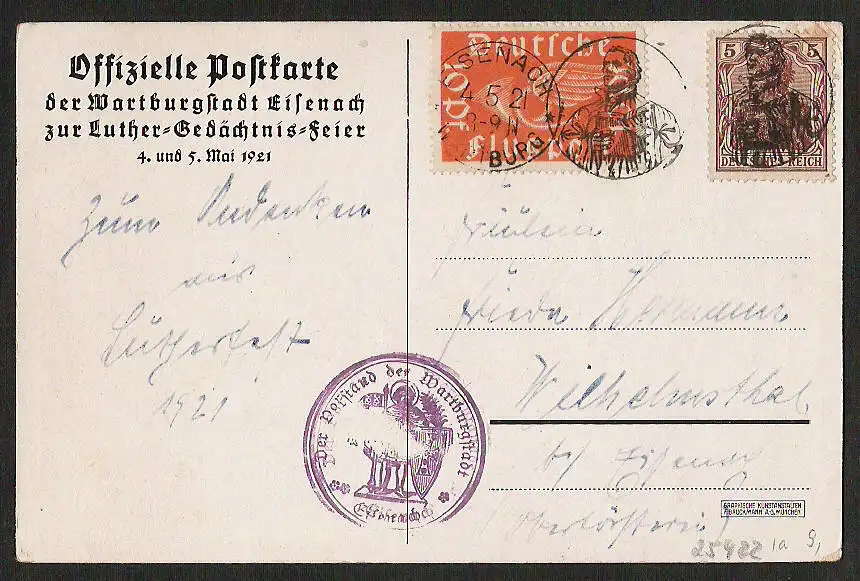 Offizielle Postkarte
der Wartburgstadt Eisenach
zur Luther-Gedächtnis-Feier
4. und 5. Mai 1921
EISENACH
4.5.21
8-9 N
BURG
Deutsche
Flugpost
40 Pf
5 5
DEUTSCHES REICH
Zum Andenken
aus
Lutherfest
1921
Fräulein
Frieda Hermann
Wilhelmsthal
b/ Eisenach
Oberförsterei
Der Vorstand der Wartburgstadt
Eisenach
GRAPHISCHE KUNSTANSTALTEN
F. BRUCKMANN A.G. MÜNCHEN
25922 1a 9,